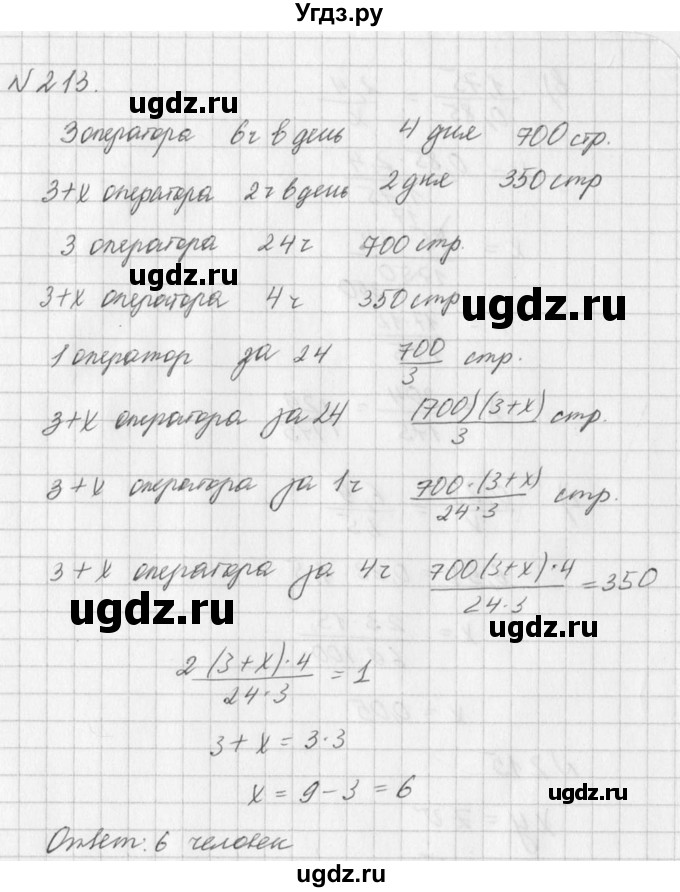 Угдз.ру
№ 213.
ugdz.ru
3 оператора 6ч в день 4 дня 700 стр.
3+x оператора 2ч в день 2 дня 350 стр
3 оператора 24ч 700 стр.
3+x оператора 4ч 350 стр
ugdz.ru ugdz.ru
1 оператор за 24 700/3 стр.
3+x оператора за 24 (700)(3+x)/3 стр.
ugdz.ru
3+x оператора за 1ч 700·(3+x)/24·3 стр.
3+x оператора за 4ч 700(3+x)·4/24·3 = 350
ugdz.ru ugdz.ru
2(3+x)·4/24·3 = 1
3+x = 3·3
x = 9-3 = 6
ugdz.ru
Ответ: 6 человек
ugdz.ru